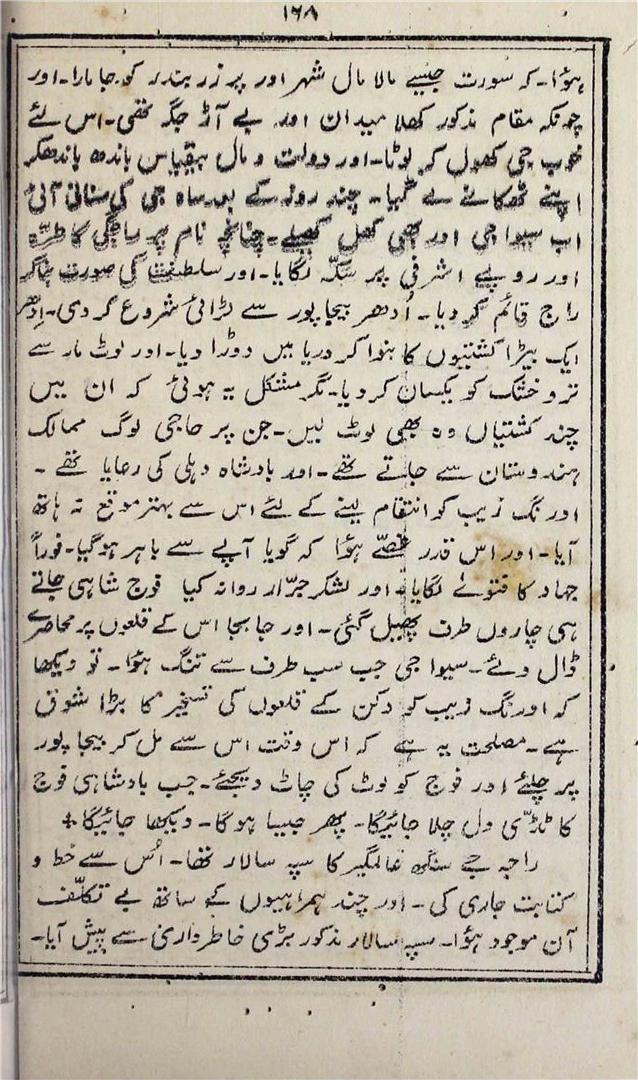 ۱۶۸
ہؤا۔ کہ سورت جیسے مالا مال شہر اور پر زر بندر کو جا مارا۔ اور
چونکہ مقام مذکور کھلا میدان اور بے آڑ جگہ تھی۔ اس لئے
خوب جی کھول کر لوٹا۔ اور دولت و مال بیقیاس باندھ باندھکر
اپنے ٹھکانے لے گیا۔ چند روز کے بعد ساہ جی کی سنانی آئی
اب سیوا جی اور بھی کھل کھیلے۔ چنانچہ نام پر راجگی کا طرّہ
اور روپے اشرفی پر سکّہ لگایا۔ اور سلطنت کی صورت بناکر
راج قائم کر دیا۔ اُدھر بیجاپور سے لڑائی شروع کر دی۔ اِدھر
ایک بیڑا کشتیوں کا بنوا کر دریا میں دوڑا دیا۔ اور لوٹ مار سے
تر و خشک کو یکساں کر دیا۔ مگر مشکل یہ ہوئی کہ ان میں
چند کشتیاں وہ بھی لوٹ لیں۔ جن پر حاجی لوگ ممالک
ہندوستان سے جاتے تھے۔ اور بادشاہ دہلی کی رعایا تھے۔
اورنگ زیب کو انتقام لینے کے لئے اس سے بہتر موقع نہ ہاتھ
آیا۔ اور اس قدر غصّے ہؤا کہ گویا آپے سے باہر ہوگیا۔ فوراً
جہاد کا فتوےٰ لگایا۔ اور لشکر جرّار روانہ کیا فوج شاہی جاتے
ہی چاروں طرف پھیل گئی۔ اور جا بجا اس کے قلعوں پر محاصرے
ڈال دئے۔ سیوا جی جب سب طرف سے تنگ ہؤا۔ تو دیکھا
کہ اورنگ زیب کو دکن کے قلعوں کی تسخیر کا بڑا شوق
ہے۔ مصلحت یہ ہے کہ اس وقت اس سے مل کر بیجاپور
پر چلئے اور فوج کو لوٹ کی چاٹ دیجئے۔ جب بادشاہی فوج
کا ٹڈّی دل چلا جائیگا۔ پھر جیسا ہوگا۔ دیکھا جائیگا +
راجہ جے سنگھ عالمگیر کا سپہ سالار تھا۔ اُس سے خط و
کتابت جاری کی۔ اور چند ہمراہیوں کے ساتھ بے تکلّف
آن موجود ہؤا۔ سپہ سالار مذکور بڑی خاطرداری سے پیش آیا۔